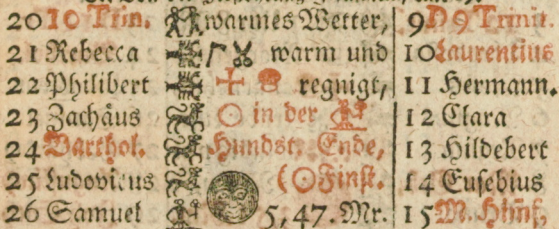 20 10 Trin. warmes Wetter, 9 D 9 Trinit
21 Rebecca warm und 10 Laurentius
22 Philibert regnigt, 11 Hermann.
23 Zachäus ☉ in der 12 Clara
24 Barthol. Hundst. Ende, 13 Hildebert
25 Ludovicus (☉Finst. 14 Eusebius
26 Samuel 5, 47. Mr. 15 M. Him̃f,